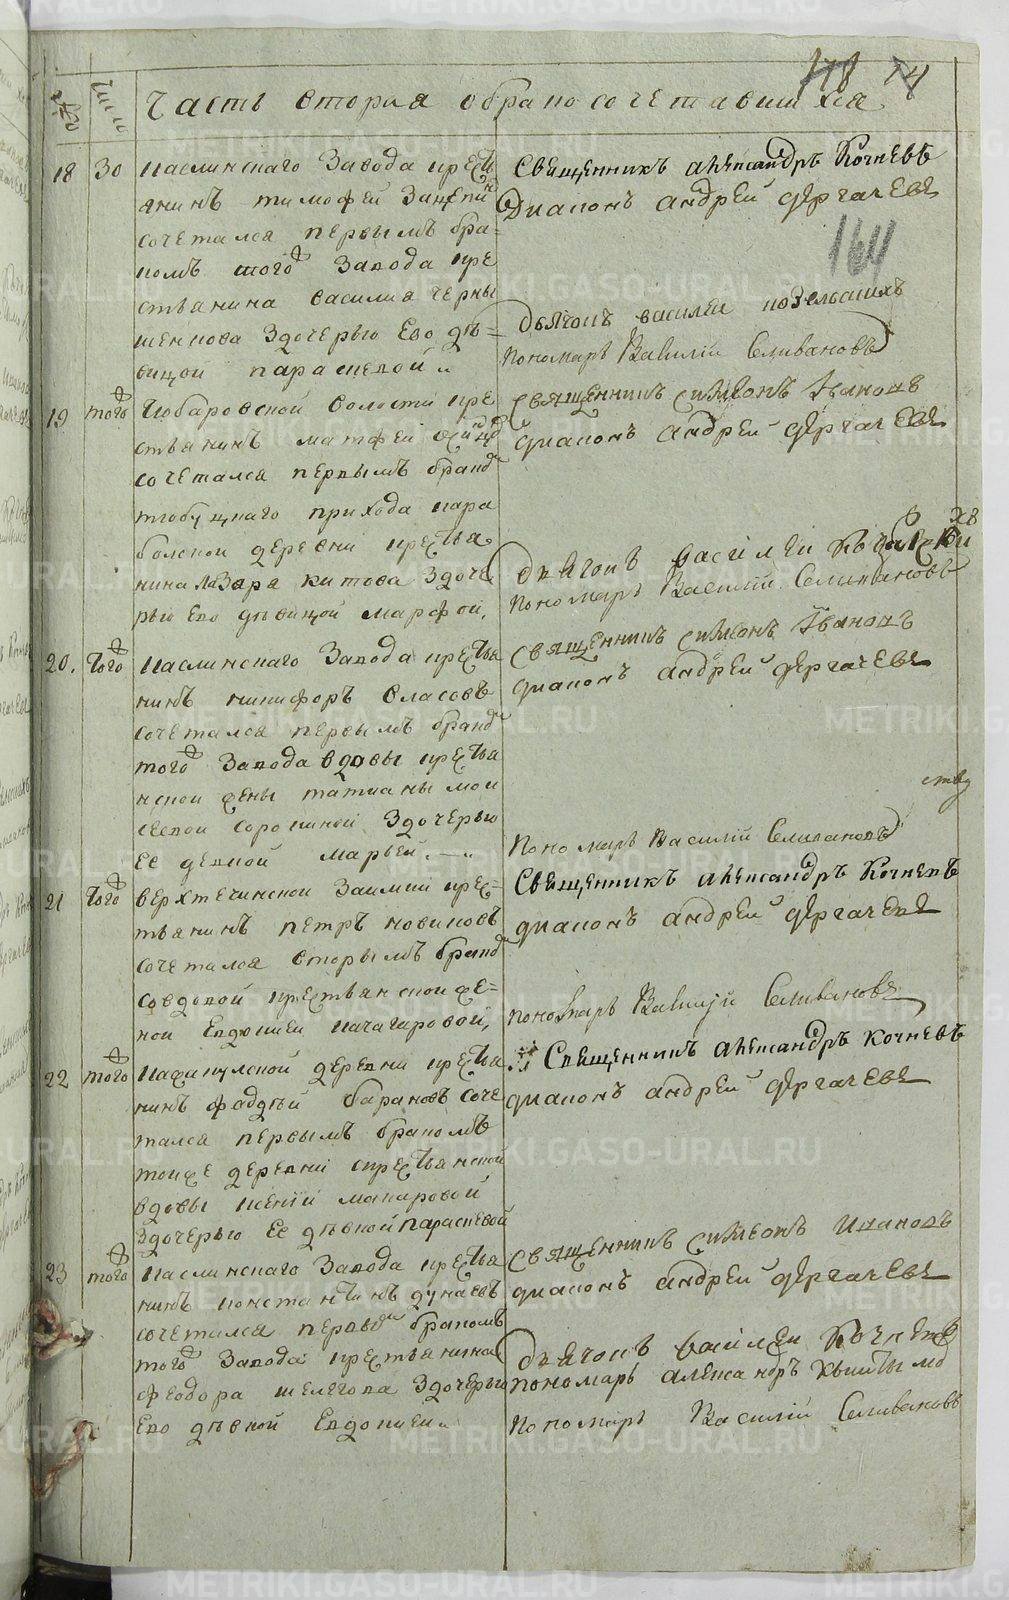 118 74
Часть вторая о бракосочетавшихся
18 30 каслинскаго завода кресть
янинъ тимофей Зацепи
сочетался первымъ бра=
комъ того завода кре
стьянина василиа черны
шенкова здочерью Его дѣ=
вицой параскевой
Священникъ александръ Кочневъ
Диаконъ андрей дергачевъ
164
дьячокъ василеи
Пономарь Василiй Селивановъ
19 того волости кре
стьянинъ матфей
сочетался первымъ бракомъ
прихода кара
болской деревни крестья
нина лазара китова здоче
рью Его дѣвицой марфой,
священникъ симеонъ Ивановъ
диаконъ андреи дергачевъ
дьячокъ василеи
пономарь Василiй Селивановъ
20. того каслинскаго завода крестья
нинъ никифоръ власовъ
сочетался первымъ бракомъ
того завода вдовы крестья
нской жены татианы мои
сеевой сорокиной здочерью
Ее девкой марьей
священникъ симеонъ Ивановъ
диаконъ андреи дергачевъ
Пономарь Василiй Селивановъ
21 того верхтечинской Заимки крес=
тьянинъ петръ новиковъ
сочетался вторымъ бракомъ
совдовой крестьянской же=
ной Евдокией
Священникъ александръ Кочневъ
диаконъ андреи дергачевъ
пономарь Василiй Селивановъ
22 того деревни крестья
нинъ фаддѣй барановъ соче
тался первымъ бракомъ
тойже деревни крестьянской
вдовы ксенiи макаровой
здочерью Ее дѣвкой параскевой
Священникъ александръ кочневъ
диаконъ андреи дергачевъ
23 того каслинскаго завода крестья
нинъ константинъ дунаевъ
сочетался первымъ бракомъ
того завода крестьянина
феодора шелегова здочерью
Его дѣвкой Евдокиеи
священникъ симеонъ Ивановъ
диаконъ андреи дергачевъ
дьячокъ василеи
пономарь александръ
Пономарь Василiй Селивановъ
METRIKI.GASO-URAL.RU